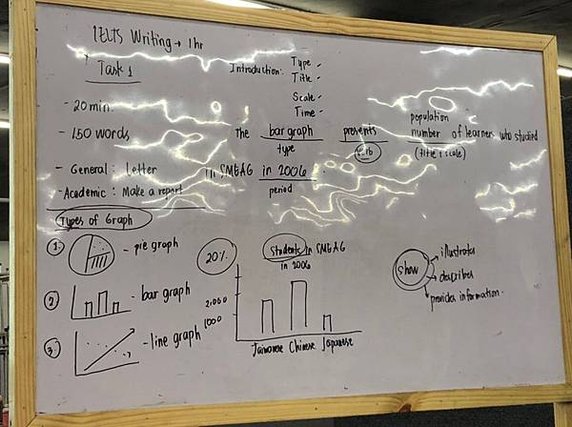 IELTS Writing → 1hr
Task 1
- 20 min.
- 150 words
- General : Letter
- Academic : Make a report
Introduction: Type -
Title -
Scale -
Time -
The bar graph presents population
number of learners who studied
type verb (title + scale)
in SMEAG in 2006
period
Types of Graph
① - pie graph
② - bar graph
③ - line graph
20%
Students in SMEAG
in 2006
2,000
1000
Taiwanese Chinese Japanese
show
illustrates
describes
provides information.